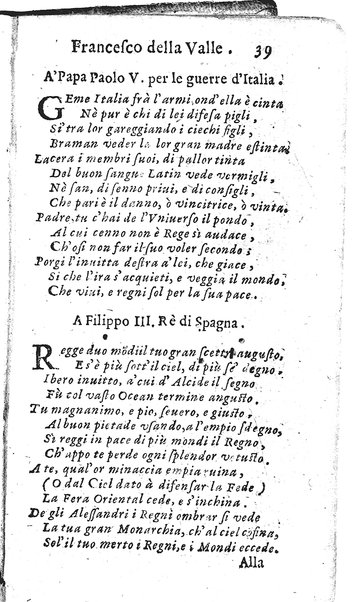 Francesco della Valle. 39
A'Papa Paolo V. per le guerre d'Italia.
GEme Italia frà l'armi, ond'ella è cinta
Nè pur è chi di lei difesa pigli,
Si tra lor gareggiando i ciechi figli,
Braman veder la lor gran madre estinta.
Lacera i membri suoi, di pallor tinta
Del buon sangue Latin vede vermigli,
Nè san, di senno priui, e di consigli,
Che pari è il danno, ò vincitrice, ò vinta.
Padre, tu c'hai de l'Vniuerso il pondo,
Al cui cenno non è Rege sì audace,
Ch'osi non far il suo voler secondo;
Porgi l'inuitta destra a'lei, che giace,
Si che l'ira s'acquieti, e veggia il mondo,
Che viui, e regni sol per la sua pace.
A Filippo III. Rè di Spagna.
REgge duo mōdi il tuo gran scettr' augusto,
E s'è più sott'il ciel, di più se' degno.
Ibero inuitto, a'cui d'Alcide il segno
Fù col vasto Ocean termine angusto.
Tu magnanimo, e pio, seuero, e giusto.
Al buon pietade vsando, a l'empio sdegno,
Si reggi in pace di più mondi il Regno,
Ch'appo te perde ogni splendor vetusto.
A te, qual'or minaccia empia ruina,
(O dal Ciel dato à difensar la Fede)
La Fera Oriental cede, e s'inchina.
De gli Alessandri i Regni ombrar si vede
La tua gran Monarchia, ch'al ciel cōfina,
Sol'il tuo merto i Regni, e i Mondi eccede.
Alla